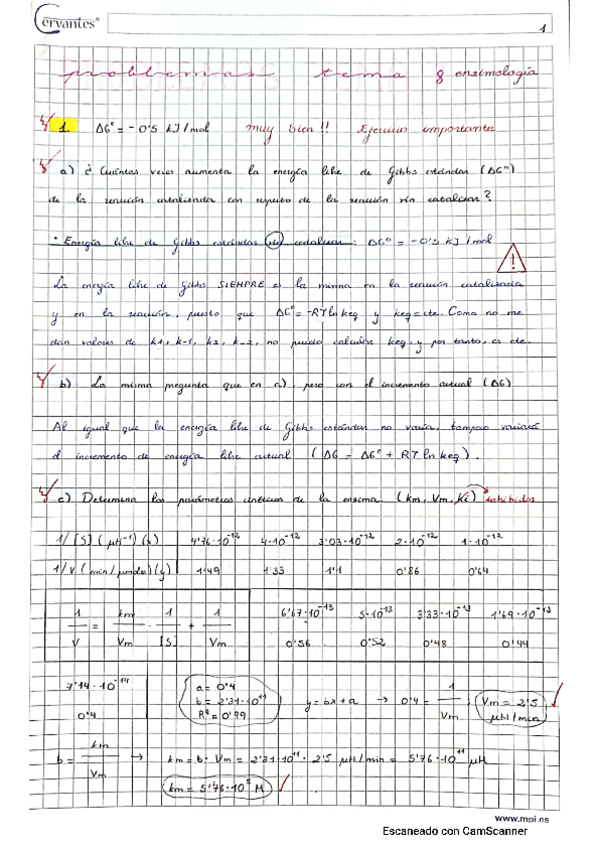 Cervantes®
1
problemas tema 8 enzimología
1. ΔG° = -0'5 KJ/mol muy bien!! Ejercicio importante
a) ¿Cuántas veces aumenta la energía libre de Gibbs estándar (ΔG°)
de la reacción catalizada con respecto de la reacción sin catalizar?
· Energía libre de Gibbs estándar sin catalizar: ΔG° = -0'5 KJ/mol
La energía libre de Gibbs SIEMPRE es la misma en la reacción catalizada
y en la reacción, puesto que ΔG° = -RT ln keq y keq = cte. Como no me
dan valores de k1, k-1, k2, k-2, no puedo calcular keq, y por tanto, es cte.
b) La misma pregunta que en a), pero con el incremento actual (ΔG)
Al igual que la energía libre de Gibbs estándar no varía, tampoco variará
el incremento de energía libre actual (ΔG = ΔG° + RT ln keq).
c) Determina los parámetros cinéticos de la enzima. (km, Vm, Ki) inhibidor
1/[S] (μM⁻¹) (x) 4'76·10⁻¹² 4·10⁻¹² 3'03·10⁻¹² 2·10⁻¹² 1·10⁻¹²
1/V (min/μmoles) (y) 1'49 1'33 1'1 0'86 0'64
1/V = km/Vm · 1/[S] + 1/Vm 6'67·10⁻¹³ 5·10⁻¹³ 3'33·10⁻¹³ 1'69·10⁻¹³
0'56 0'52 0'48 0'44
7'14·10⁻¹⁴
0'4
a = 0'4
b = 2'31·10¹¹
R² = 0'99
y = bx + a → 0'4 = 1/Vm ; Vm = 2'5 μM/min
b = km/Vm → km = b · Vm = 2'31·10¹¹ · 2'5 μM/min = 5'76·10¹¹ μM
km = 5'76·10⁵ M
www.mpi.es
Escaneado con CamScanner